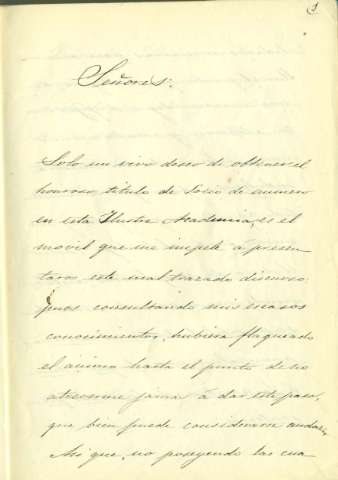 1
Señores:
Solo un vivo deseo de obtener el
honroso titulo de Socio de numero
en esta Ilustre Academia, es el
movil que me impele á presen-
taros este mal trazado discurso
pues consultando mis escasos
conocimientos, hubiera flaqueado
el ánimo hasta el punto de no
atreverme jamas á dar este paso,
que bien puede considerarse audaz,
Asi que, no poseyendo las cua